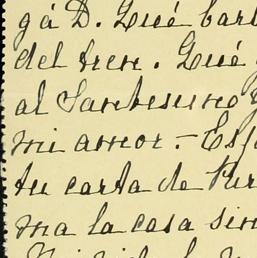 gá D. Qué bar
del tren. Qué
al Santísimo
mi amor.- Esp
tu carta de Pur
ma la casa sin